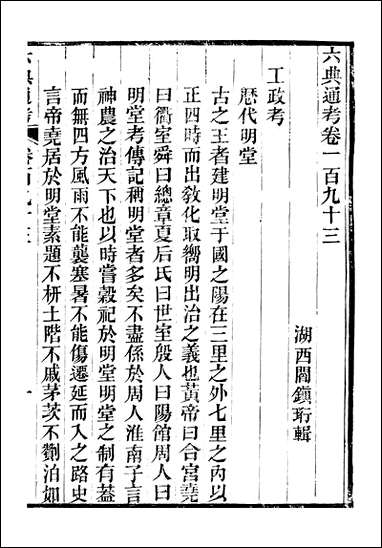 六典通考卷一百九十三
湖西閻鎭珩輯
工政考
歷代明堂
古之王者建明堂于國之陽在三里之外七里之內以
正四時而出敎化取嚮明出治之義也黃帝曰合宮堯
曰衢室舜曰總章夏后氏曰世室殷人曰陽館周人曰
明堂考傳記稱明堂者多矣不盡係於周人淮南子言
神農之治天下也以時嘗穀祀於明堂明堂之制有蓋
而無四方風雨不能襲寒暑不能傷遷延而入之路史
言帝堯居於明堂素題不枅土階不戚茅茨不劗泊如
六典通考
卷百九十三
一